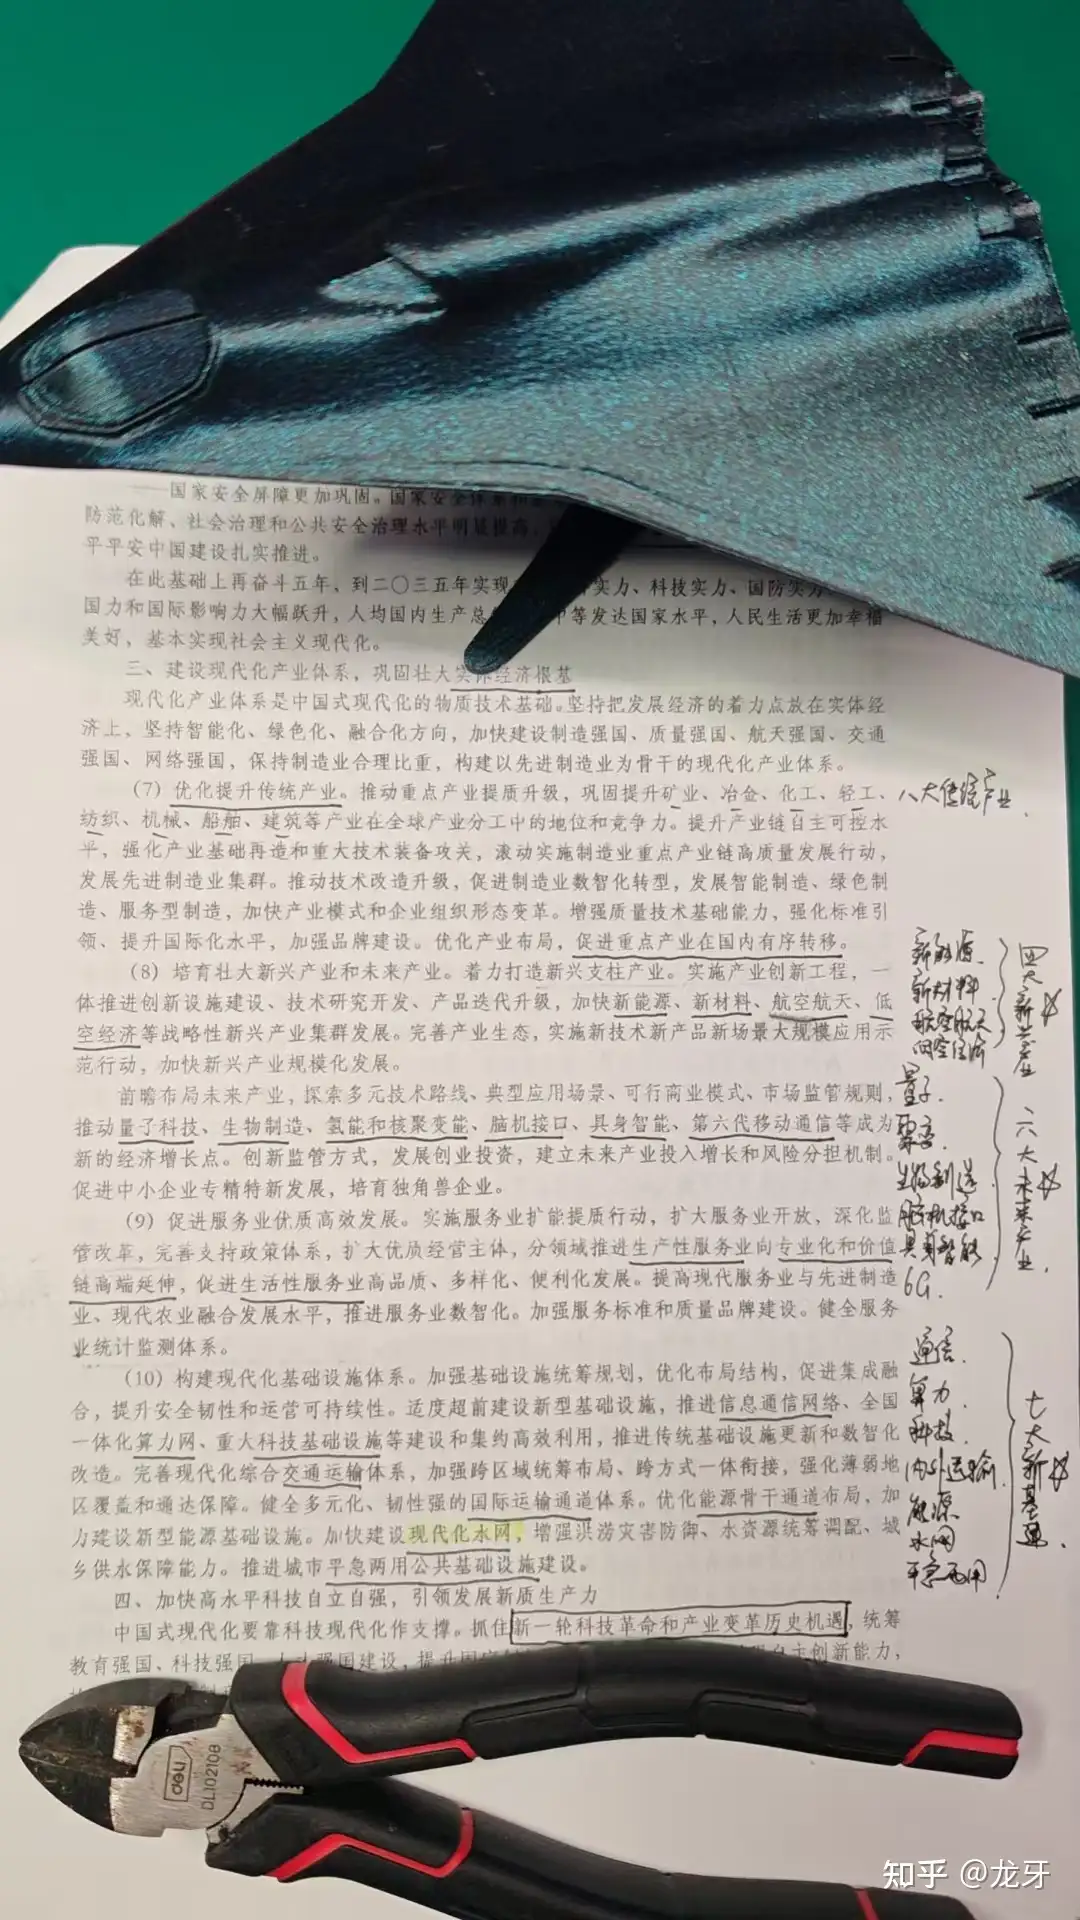 国家安全屏障更加巩固。国家安全体系和
防范化解、社会治理和公共安全治理水平明显提高，
平平安中国建设扎实推进。
在此基础上再奋斗五年，到二〇三五年实现 实力、科技实力、国防实力、
国力和国际影响力大幅跃升，人均国内生产总 中等发达国家水平，人民生活更加幸福
美好，基本实现社会主义现代化。
三、建设现代化产业体系，巩固壮大实体经济根基
现代化产业体系是中国式现代化的物质技术基础。坚持把发展经济的着力点放在实体经
济上，坚持智能化、绿色化、融合化方向，加快建设制造强国、质量强国、航天强国、交通
强国、网络强国，保持制造业合理比重，构建以先进制造业为骨干的现代化产业体系。
（7）优化提升传统产业。推动重点产业提质升级，巩固提升矿业、冶金、化工、轻工、
八大传统产业.
纺织、机械、船舶、建筑等产业在全球产业分工中的地位和竞争力。提升产业链自主可控水
平，强化产业基础再造和重大技术装备攻关，滚动实施制造业重点产业链高质量发展行动，
发展先进制造业集群。推动技术改造升级，促进制造业数智化转型，发展智能制造、绿色制
造、服务型制造，加快产业模式和企业组织形态变革。增强质量技术基础能力，强化标准引
领、提升国际化水平，加强品牌建设。优化产业布局，促进重点产业在国内有序转移。
（8）培育壮大新兴产业和未来产业。着力打造新兴支柱产业。实施产业创新工程，一
体推进创新设施建设、技术研究开发、产品迭代升级，加快新能源、新材料、航空航天、低
空经济等战略性新兴产业集群发展。完善产业生态，实施新技术新产品新场景大规模应用示
范行动，加快新兴产业规模化发展。
新能源.
新材料
航空航天
低空经济
四大新兴产业
前瞻布局未来产业，探索多元技术路线、典型应用场景、可行商业模式、市场监管规则，
推动量子科技、生物制造、氢能和核聚变能、脑机接口、具身智能、第六代移动通信等成为
新的经济增长点。创新监管方式，发展创业投资，建立未来产业投入增长和风险分担机制。
促进中小企业专精特新发展，培育独角兽企业。
量子.
聚变.
生物制造
脑机接口
具身智能
6G.
六大未来产业.
（9）促进服务业优质高效发展。实施服务业扩能提质行动，扩大服务业开放，深化监
管改革，完善支持政策体系，扩大优质经营主体，分领域推进生产性服务业向专业化和价值
链高端延伸，促进生活性服务业高品质、多样化、便利化发展。提高现代服务业与先进制造
业、现代农业融合发展水平，推进服务业数智化。加强服务标准和质量品牌建设。健全服务
业统计监测体系。
（10）构建现代化基础设施体系。加强基础设施统筹规划，优化布局结构，促进集成融
合，提升安全韧性和运营可持续性。适度超前建设新型基础设施，推进信息通信网络、全国
一体化算力网、重大科技基础设施等建设和集约高效利用，推进传统基础设施更新和数智化
改造。完善现代化综合交通运输体系，加强跨区域统筹布局、跨方式一体衔接，强化薄弱地
区覆盖和通达保障。健全多元化、韧性强的国际运输通道体系。优化能源骨干通道布局，加
力建设新型能源基础设施。加快建设现代化水网，增强洪涝灾害防御、水资源统筹调配、城
乡供水保障能力。推进城市平急两用公共基础设施建设。
通信.
算力
科技.
内外运输
能源
水网
平急两用
七大新基建.
四、加快高水平科技自立自强，引领发展新质生产力
中国式现代化要靠科技现代化作支撑。抓住新一轮科技革命和产业变革历史机遇，统筹
教育强国、科技强国、人才强国建设，提升国家 自主创新能力，
deli
DL102108
知乎 @龙牙